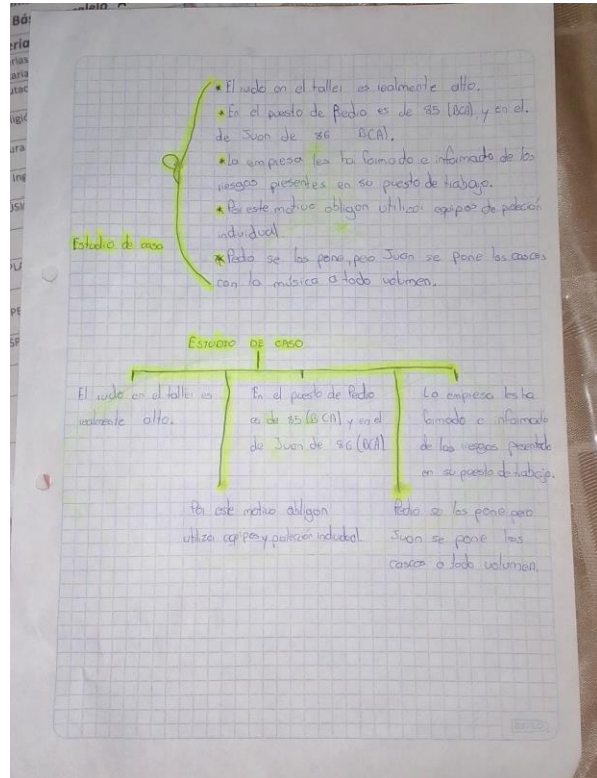 * El ruido en el taller es realmente alto.
* En el puesto de Pedro es de 85 (BCA), y en el.
de Juan de 86 BCA).
* La empresa les ha formado e informado de los
riesgos presentes en su puesto de trabajo.
* Por este motivo obligan utilizar equipos de protección
individual
Estudio de caso
* Pedro se los pone, pero Juan se pone los cascos
con la música a todo volumen.
ESTUDIO DE CASO
El ruido en el taller es
realmente alto.
En el puesto de Pedro
es de 85 (BCA) y en el
de Juan de 86 (BCA)
La empresa les ha
formado e informado
de los riesgos
en su puesto de trabajo.
Por este motivo obligan
utilizar equipos y protección individual.
Pedro se los pone, pero
Juan se pone los
cascos a todo volumen.